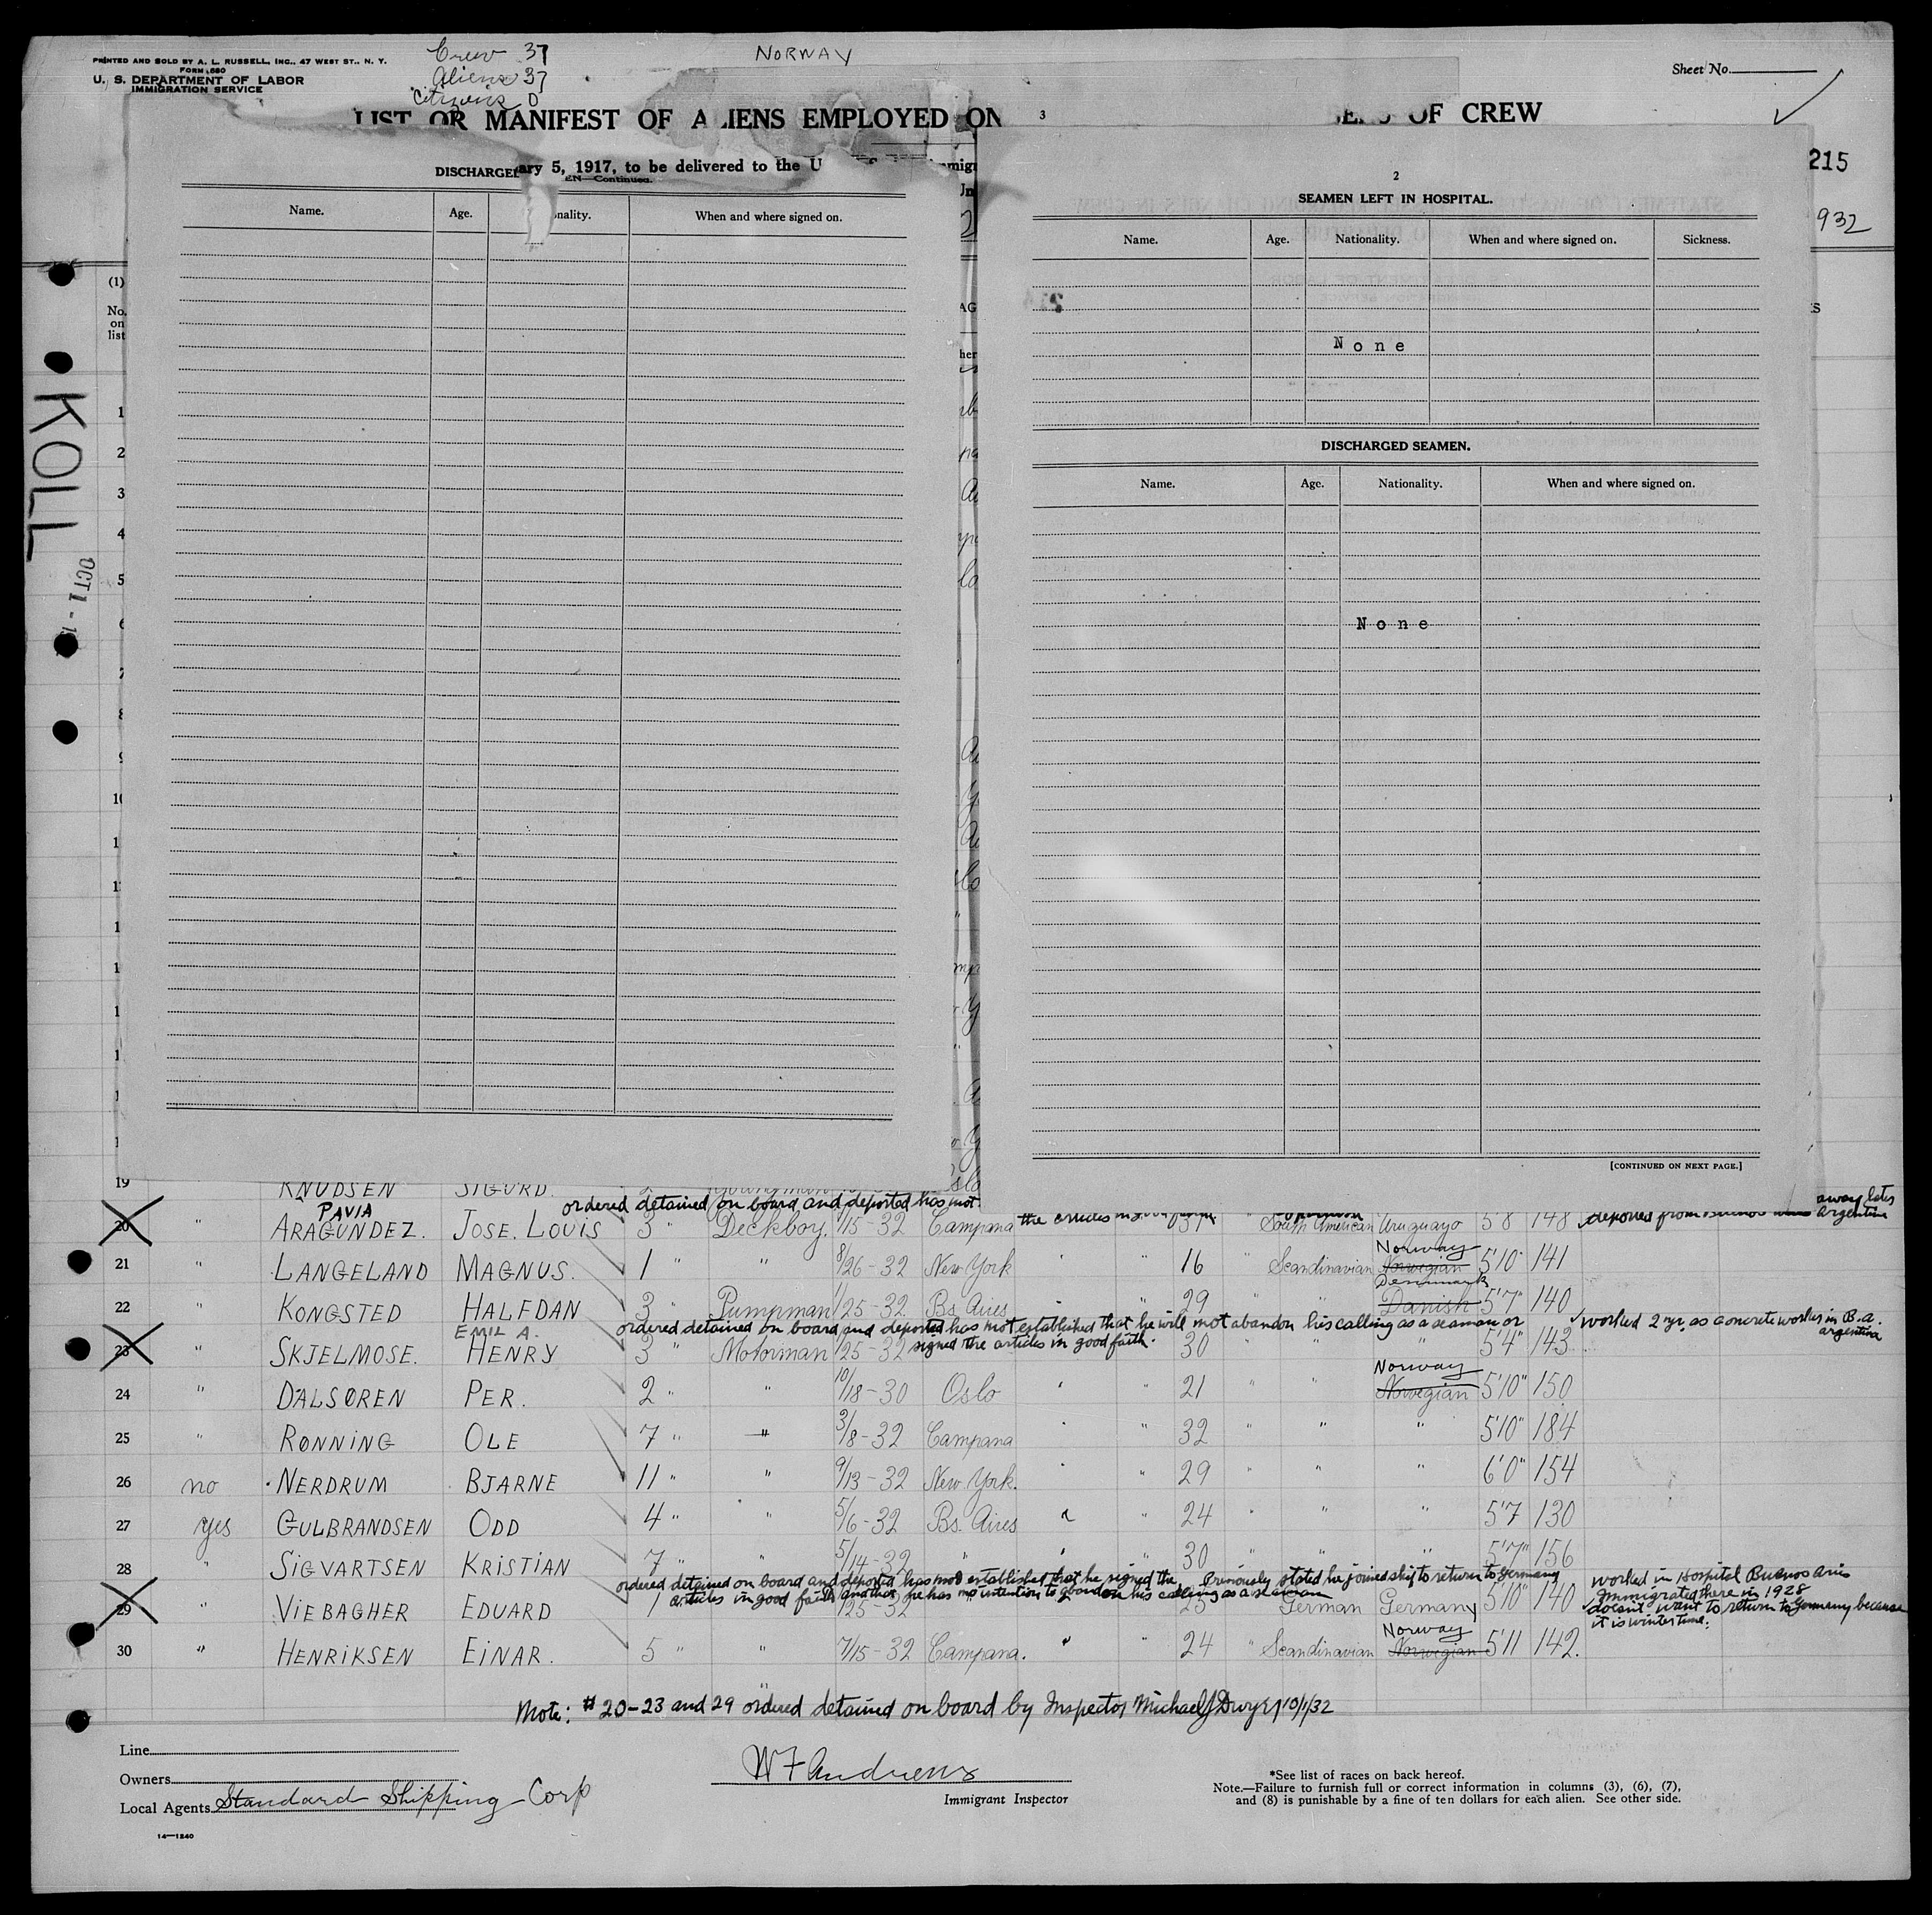 PRINTED AND SOLD BY A. L. RUSSELL, INC., 47 WEST ST., N. Y.
FORM 680
U. S. DEPARTMENT OF LABOR
IMMIGRATION SERVICE
Crew 37
Aliens 37
Citizens 0
NORWAY
Sheet No.
LIST OR MANIFEST OF ALIENS EMPLOYED ON
3
OF CREW
ary 5, 1917, to be delivered to the U
DISCHARGE
EN—Continued.
215
932
Name. Age. nality. When and where signed on.
2
SEAMEN LEFT IN HOSPITAL.
Name. Age. Nationality. When and where signed on. Sickness.
None
DISCHARGED SEAMEN.
Name. Age. Nationality. When and where signed on.
None
[CONTINUED ON NEXT PAGE.]
KOLL
OCT 1 -
(1)
No.
on
list
1
2
3
4
5
6
7
8
9
19 KNUDSEN SIGURD
ordered detained on board and deported has not
PAVIA
away later
20 " ARAGUNDEZ. JOSE. LOUIS 3 " Deckboy. /15-32 Campana 37 " South American Uruguayo 5'8 148 deported from Buenos Argentine
21 " LANGELAND MAGNUS. 1 " " 8/26-32 New York " " 16 " Scandinavian Norway Norwegian 5'10" 141
22 " KONGSTED HALFDAN 3 " Pumpman /25-32 Bs. Aires " " 29 " " Denmark Danish 5'7" 140
ordered detained on board and deported has not established that he will not abandon his calling as a seaman or
worked 2 yr. as concrete worker in B.A.
argentina
EMIL A.
23 SKJELMOSE. HENRY 3 " Motorman /25-32 signed the articles in good faith. 30 " " " 5'4" 143
24 " DALSØREN PER. 2 " " 10/18-30 Oslo " " 21 " " Norway Norwegian 5'10" 150
25 " RØNNING OLE 7 " " 3/8-32 Campana " " 32 " " " 5'10" 184
26 no NERDRUM BJARNE 11 " " 9/13-32 New York. " " 29 " " " 6'0" 154
27 yes GULBRANDSEN ODD 4 " " 5/6-32 Bs. Aires " " 24 " " " 5'7 130
28 " SIGVARTSEN KRISTIAN 7 " " 5/14-32 " " " 30 " " " 5'7" 156
ordered detained on board and deported has not established that he signed the Previously stated he joined ship to return to Germany
articles in good faith and that he has no intention to abandon his calling as a seaman
worked in Hospital Buenos Aires
Immigrated there in 1928
doesnt want to return to Germany because
it is winter time.
29 " VIEBAGHER EDUARD 1 /25-32 German Germany 5'10" 140
30 " HENRIKSEN EINAR. 5 " " 7/15-32 Campana. " " 24 " Scandinavian Norway Norwegian 5'11 142.
Note: # 20-23 and 29 ordered detained on board by Inspector Michael J Dwyer 10/1/32
Line
Owners
Local Agents Standard Shipping Corp
W F Andrews
Immigrant Inspector
*See list of races on back hereof.
Note.—Failure to furnish full or correct information in columns (3), (6), (7),
and (8) is punishable by a fine of ten dollars for each alien. See other side.
14—1240